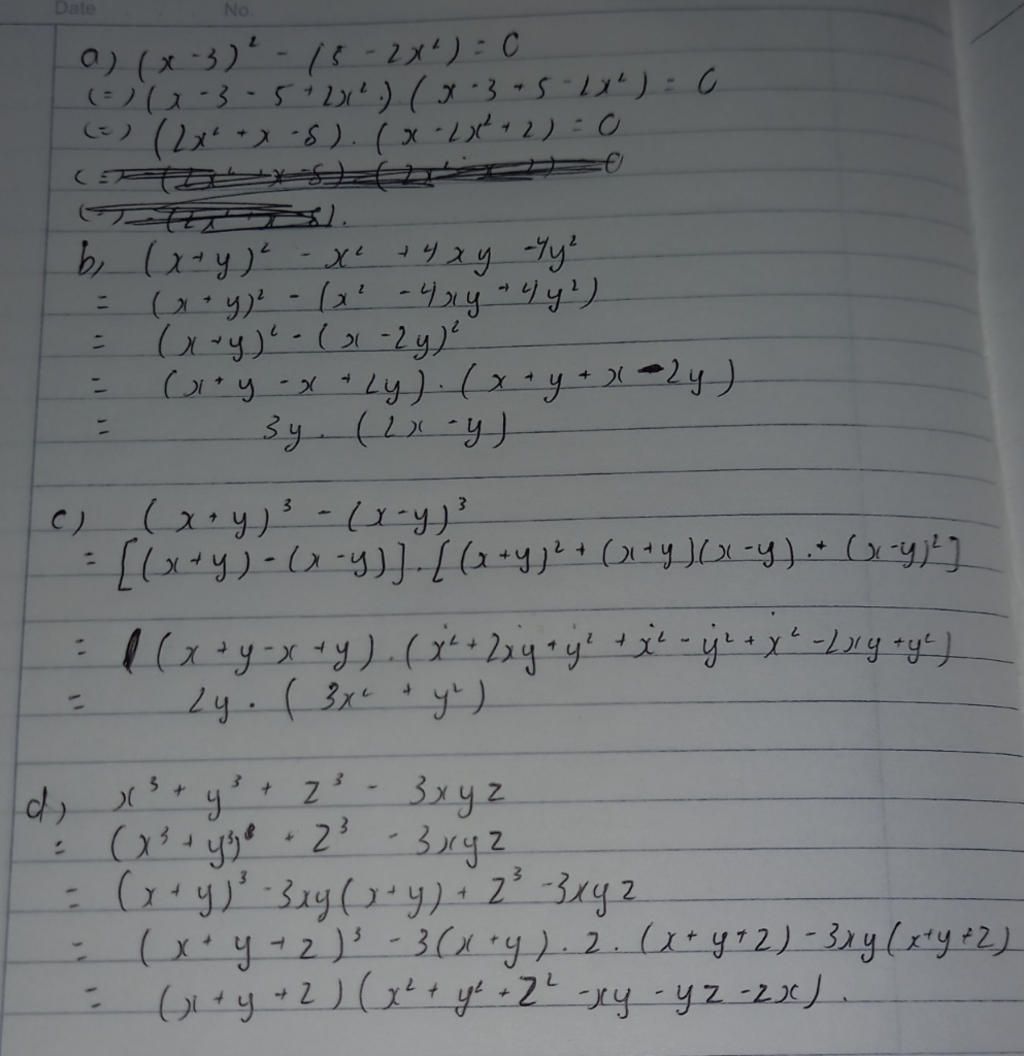 Date No.
a) (x - 3)² - (5 - 2x²) = 0
(=) (x - 3 - 5 + 2x²) (x - 3 + 5 - 2x²) = 0
(=) (2x² + x - 8) . (x - 2x² + 2) = 0
b, (x + y)² - x² + 4xy - 4y²
= (x + y)² - (x² - 4xy + 4y²)
= (x + y)² - (x - 2y)²
= (x + y - x + 2y) . (x + y + x - 2y)
= 3y . (2x - y)
c) (x + y)³ - (x - y)³
= [(x + y) - (x - y)] . [(x + y)² + (x + y)(x - y) . + (x - y)²]
= (x + y - x + y) . (x² + 2xy + y² + x² - y² + x² - 2xy + y²)
= 2y . (3x² + y²)
d, x³ + y³ + z³ - 3xyz
= (x³ + y³) + z³ - 3xyz
= (x + y)³ - 3xy(x + y) + z³ - 3xyz
= (x + y + z)³ - 3(x + y) . z . (x + y + z) - 3xy(x + y + z)
= (x + y + z)(x² + y² + z² - xy - yz - zx) .